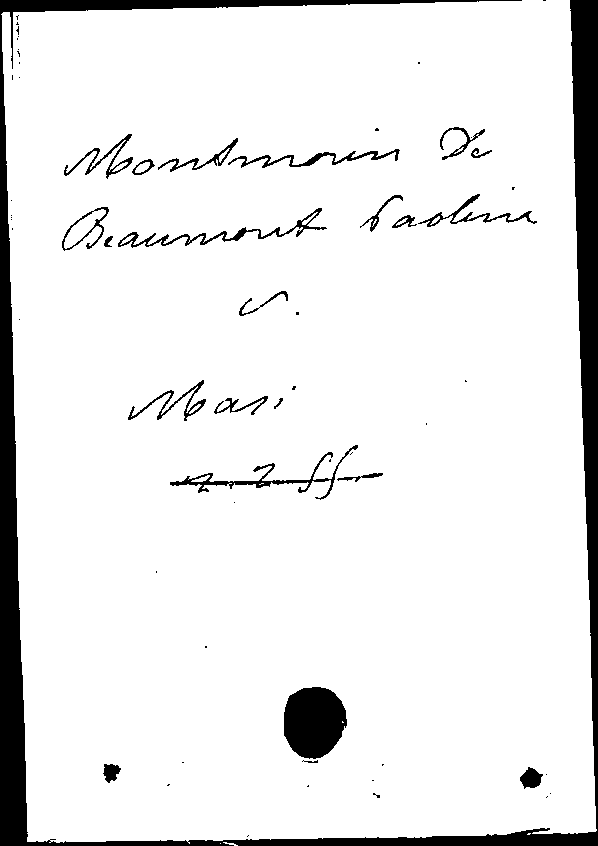 Montmorin De
Beaumont Paolina
v.
Masi
n. 2 ff.